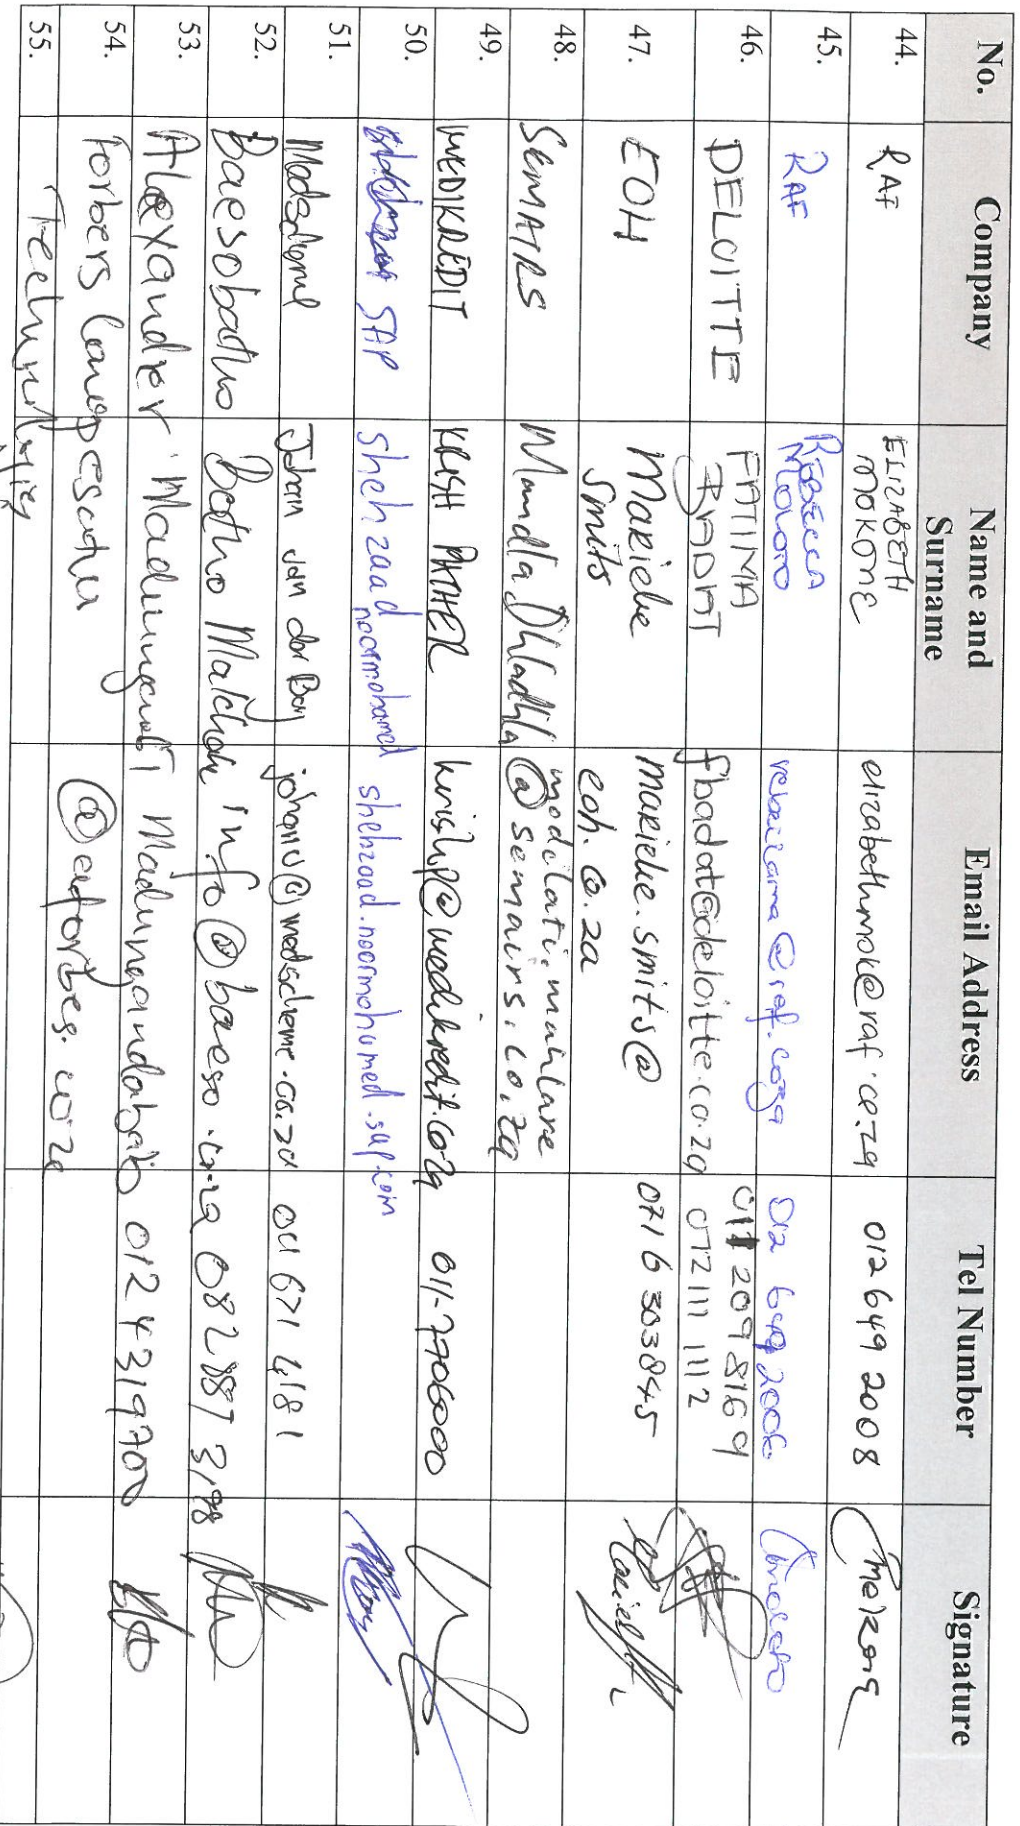 No. Company Name and Surname Email Address Tel Number Signature
44. RAF ELIZABETH MOKONE elizabethmok@raf.co.za 012 649 2008
45. RAF REBECCA MOLOTO 012 649 2006
46. DELOITTE FATIMA BADAT fbadat@deloitte.co.za 011 209 8169
072 111 1112
47. EOH Marieke Smits marieke.smits@
eoh.co.za 0716303845
48. SEMAIRS Mandla Dhladhla
@semairs.co.za
49. MEDIKREDIT KRISH PATHER krishp@medikredit.co.za 011-7706000
50. SAP shehzaad noormohamed shehzaad.noormohamed.sap.com
51. Medscheme Johan van der Berg johanv@medscheme.co.za 011 671 4181
52. Baesobatho Botho info@baeso.co.za 082 887 3198
53. Alexander 012 4319700
54. Forbers @aforbes.co.za
55.